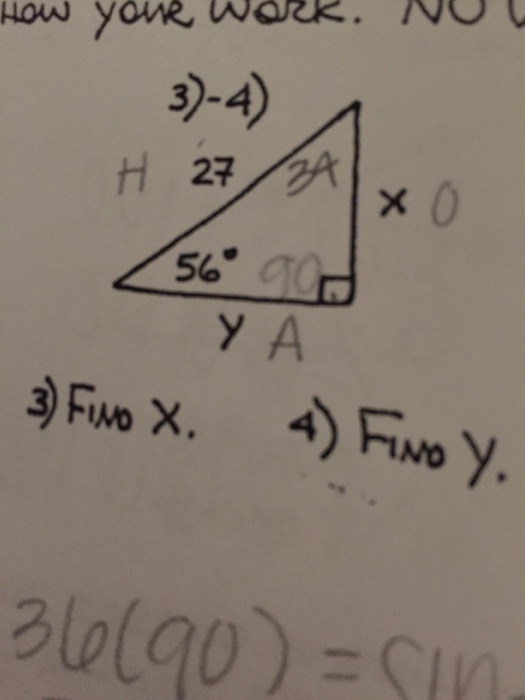 HOW YOUR WORK. NO
3)-4)
H 27 34
X O
56° 90
Y A
3) FIND X. 4) FIND Y.
36(90) = sin